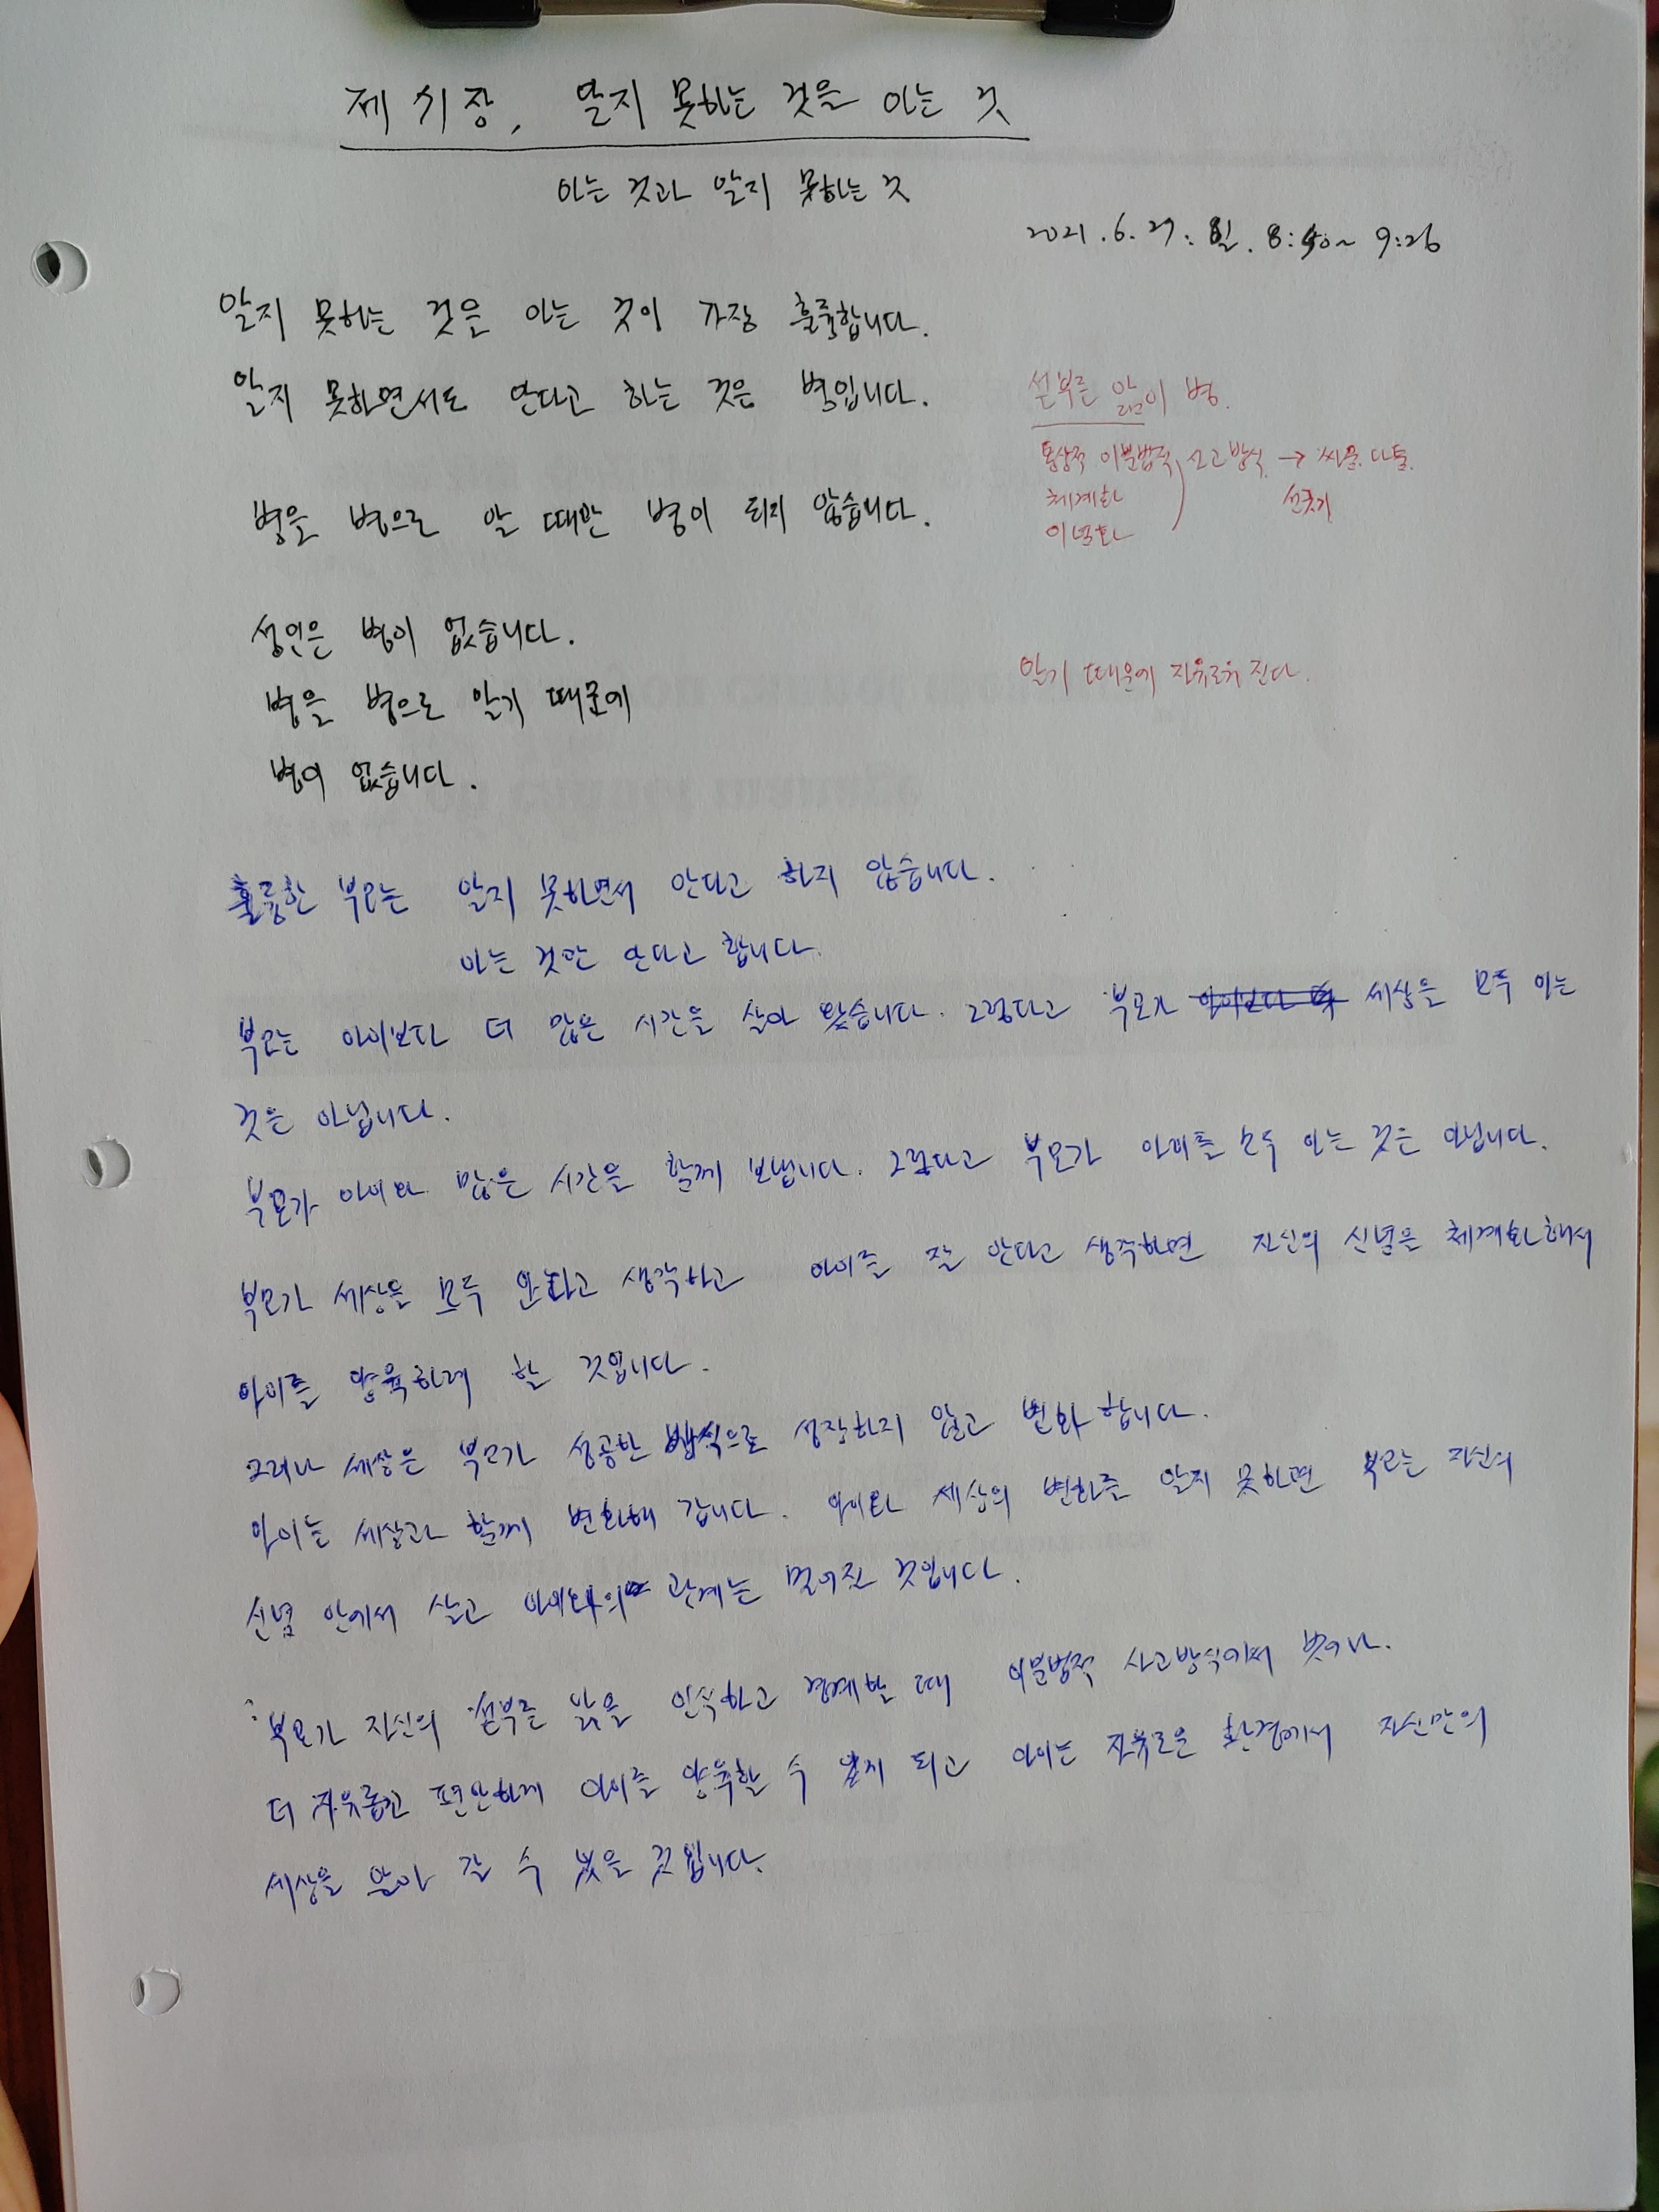 제 71장, 알지 못하는 것을 아는 것
아는 것과 알지 못하는 것
2021.6.27. 일. 8:40~ 9:26
알지 못하는 것을 아는 것이 가장 훌륭합니다.
알지 못하면서도 안다고 하는 것은 병입니다.
섣부른 앎이 병.
통상적 이분법적 사고방식 → 싸움. 다툼.
체계화
선긋기
이념화
병을 병으로 알 때만 병이 되지 않습니다.
성인은 병이 없습니다.
알기 때문에 자유로워 진다.
병을 병으로 알기 때문에
병이 없습니다.
훌륭한 부모는 알지 못하면서 안다고 하지 않습니다.
아는 것만 안다고 합니다.
부모는 아이보다 더 많은 시간을 살아 왔습니다. 그렇다고 부모가 세상을 모두 아는
것은 아닙니다.
부모가 아이와 많은 시간을 함께 보냅니다. 그렇다고 부모가 아이를 모두 아는 것은 아닙니다.
부모가 세상을 모두 안다고 생각하고 아이를 잘 안다고 생각하면 자신의 신념을 체계화해서
아이를 양육하려 할 것입니다.
그러나 세상은 부모가 성공한 방식으로 성장하지 않고 변화 합니다.
아이는 세상과 함께 변화해 갑니다. 아이와 세상의 변화를 알지 못하면 부모는 자신의
신념 안에서 살고 아이와의 관계는 멀어질 것입니다.
부모가 자신의 섣부른 앎을 인식하고 경계할 때 이분법적 사고방식에서 벗어나.
더 자유롭고 편안하게 아이를 양육할 수 있게 되고 아이는 자유로운 환경에서 자신만의
세상을 알아 갈 수 있을 것입니다.